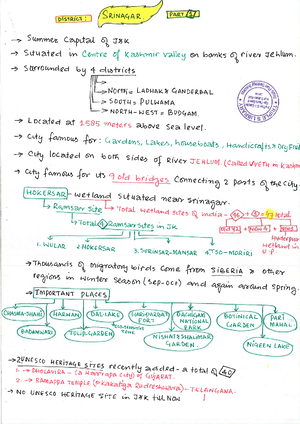 DISTRICT: SRINAGAR. PART 1
→ Summer Capital of J&K
→ Situated in Centre of Kashmir Valley on banks of river Jehlum.
→ Surrounded by 4 districts
→ NORTH = LADHAK & GANDERBAL
→ SOUTH = PULWAMA
→ NORTH-WEST = BUDGAM.
→ Located at 1585 meters above sea level.
→ City famous for: Gardens, Lakes, houseboats, Handicrafts & Dry Fruits
→ City located on both sides of River JEHLUM. (Called VYETH in Kashm
→ City famous for its 9 old bridges Connecting 2 parts of the City.
HOKERSAR - wetland situated near Srinagar.
→ Ramsar Site → Total wetland sites of India - = 47 total
→ Total 4 Ramsar sites in JK
Haiderpur Wetland in U.P.
1. WULAR 2. HOKERSAR 3. SURINSAR-MANSAR 4. TSO-MORIRI
→ Thousands of migratory birds come from SIBERIA & other
regions in winter Season (sep-oct) and again around spring.
→ IMPORTANT PLACES
CHASMA-SHAHI HARWAN DAL-LAKE HARIPARBAT FORT DACHIGAM NATIONAL PARK BOTANICAL GARDEN PARI MAHAL
BADAMWARI TULIP GARDEN ECO-SENSITIVE ZONE NISHAT & SHALIMAR GARDEN. NIGEEN LAKE
→ 2 UNESCO HERITAGE SITES recently added - a total of 40
1. → DHOLAVIRA - (a Harrapa City) of GUJARAT.
2. → RAMAPPA TEMPLE (Kakatiya Rudreshwara) - TELANGANA.
→ NO UNESCO HERITAGE SITE in J&K till NOW